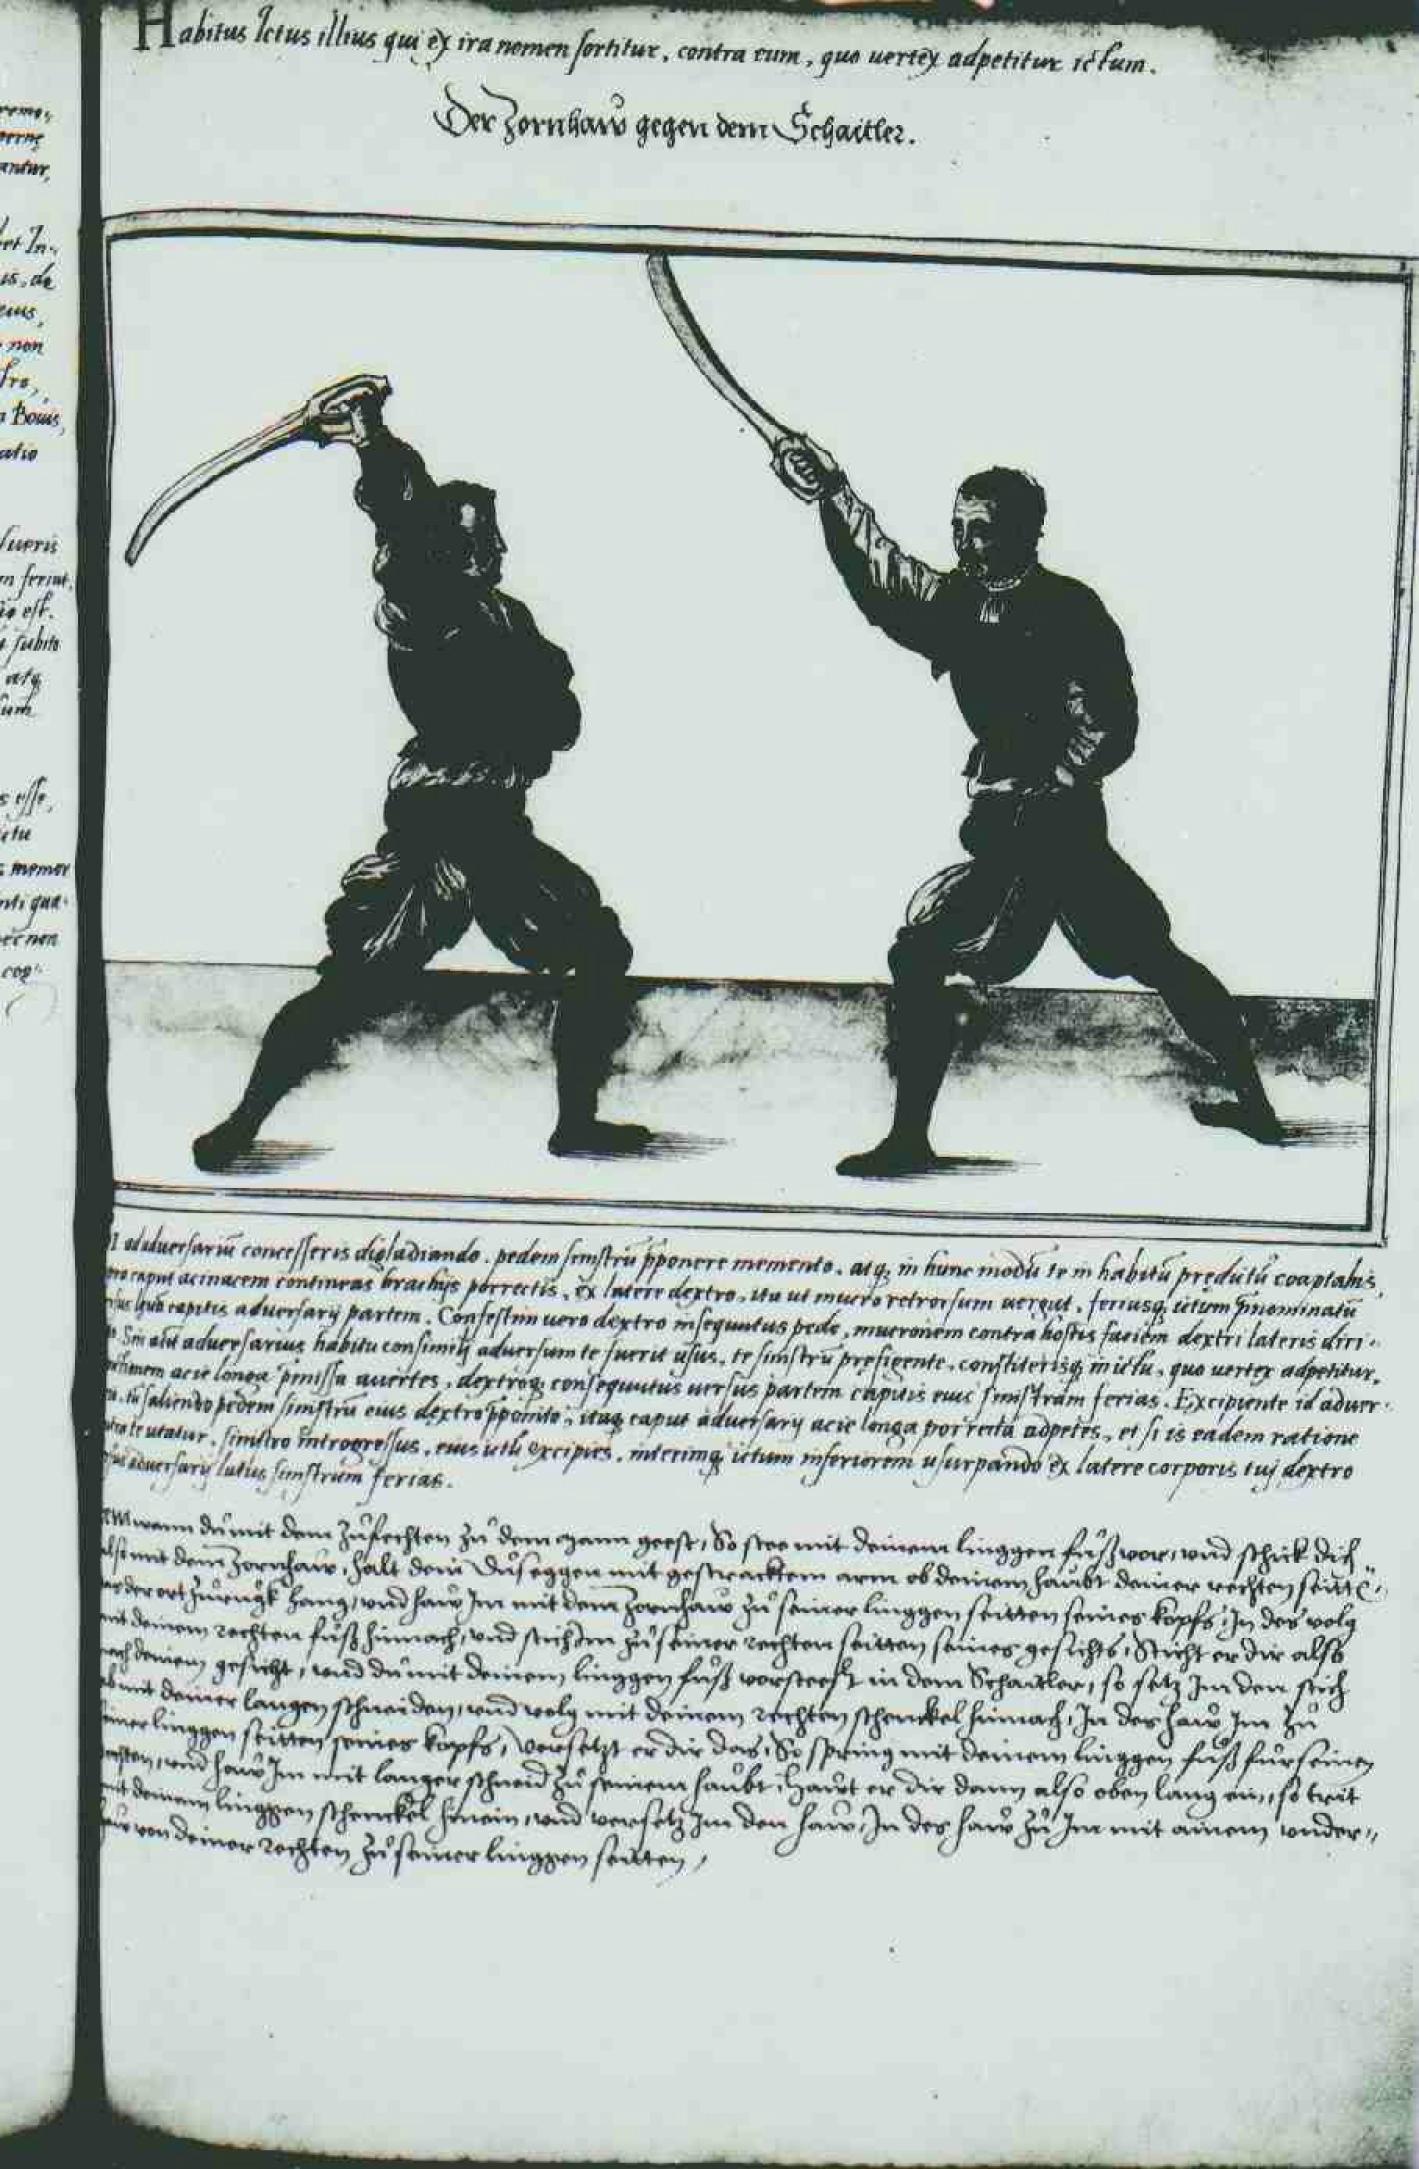 remo,,
antur,
et In-,
us, de
eius,
non
Bouis,
atio
fueris
m feriat,
io est.
subito
atq
sum
s esse,
ictu
s memor
nti qua-
nec non
Habitus Ictus illius qui ex ira nomen sortitur, contra eum, quo uertex adpetitur ictum.
Der Zornhaw gegen dem Schaitler.
I ad aduersariū concesseris digladiando, pedem sinistrū p̄ponere memento, atq; in hunc modū te in habitū predictū coaptabis,
caput acinacem contineas brachijs porrectis, ex latere dextro, ita ut mucro retrorsum uergat, feriasq; ictum p̄nominatū
capitis aduersarij partem. Confestim uero dextro insequutus pede, mucronem contra hostis faciem dextri lateris diri-
Sin aūt aduersarius habitu consimili aduersum te fuerit usus, te sinistrū prefigente, constiterisq; in ictu, quo uertex adpetitur,
acie longa auertes, dextroq; consequutus uersus partem capitis eius sinistram ferias. Excipiente id aduer-
tu saliendo pedem sinistrū eius dextro p̄ponito, itaq; caput aduersarij acie longa porrecta adpetes, et si is eadem ratione
te utatur, sinistro introgressus, eius ictū excipies, interimq; ictum inferiorem usurpando ex latere corporis tuj dextro
aduersarij latus sinistrum ferias.
wann du mit dem zufechten zu dem mann geest, So stee mit deinem linggen fuß vor, vnd schick dich
also mit dem Zornhaw, halt dein Duseggen mit gestracktem arm ob deinem haubt deiner rechten seitte,
der ort zurugk hang, vnd haw Im mit dem Zornhaw zu seiner linggen seitten seines kopfs, In des volg
mit deinem rechten fuß hinnach, vnd stich Im zu seiner rechten seitten seines gesichts, Sticht er dir also
nach deinem gesicht, vnd du mit deinem linggen fuß vorsteest in dem Schaitler, so setz Im den stich
ab mit deiner langen schneiden, vnd volg mit deinem rechten schenckel hinnach, In des haw Im zu
seiner linggen seitten seines kopfs, Versetzt er dir das, So spring mit deinem linggen fuß fur seinen
rechten, vnd haw Im mit langer schneid zu seinem haubt, Hawt er dir dann also oben lang ein, so trit
mit deinem linggen schenckel hinein, vnd versetz Im den haw, In des haw zu Im mit ainem vnder,,
haw von deiner rechten zu seiner linggen seitten,